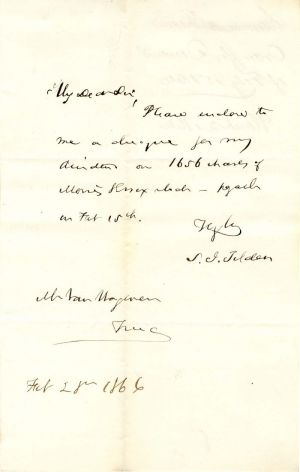 My dear Sir,
Please enclose to
me a cheque for my
dividend on 1656 shares of
Morris & Essex stock –
on Feb 15th.
Truly
S. J. Tilden
Mr Van
Feb 28th 1866